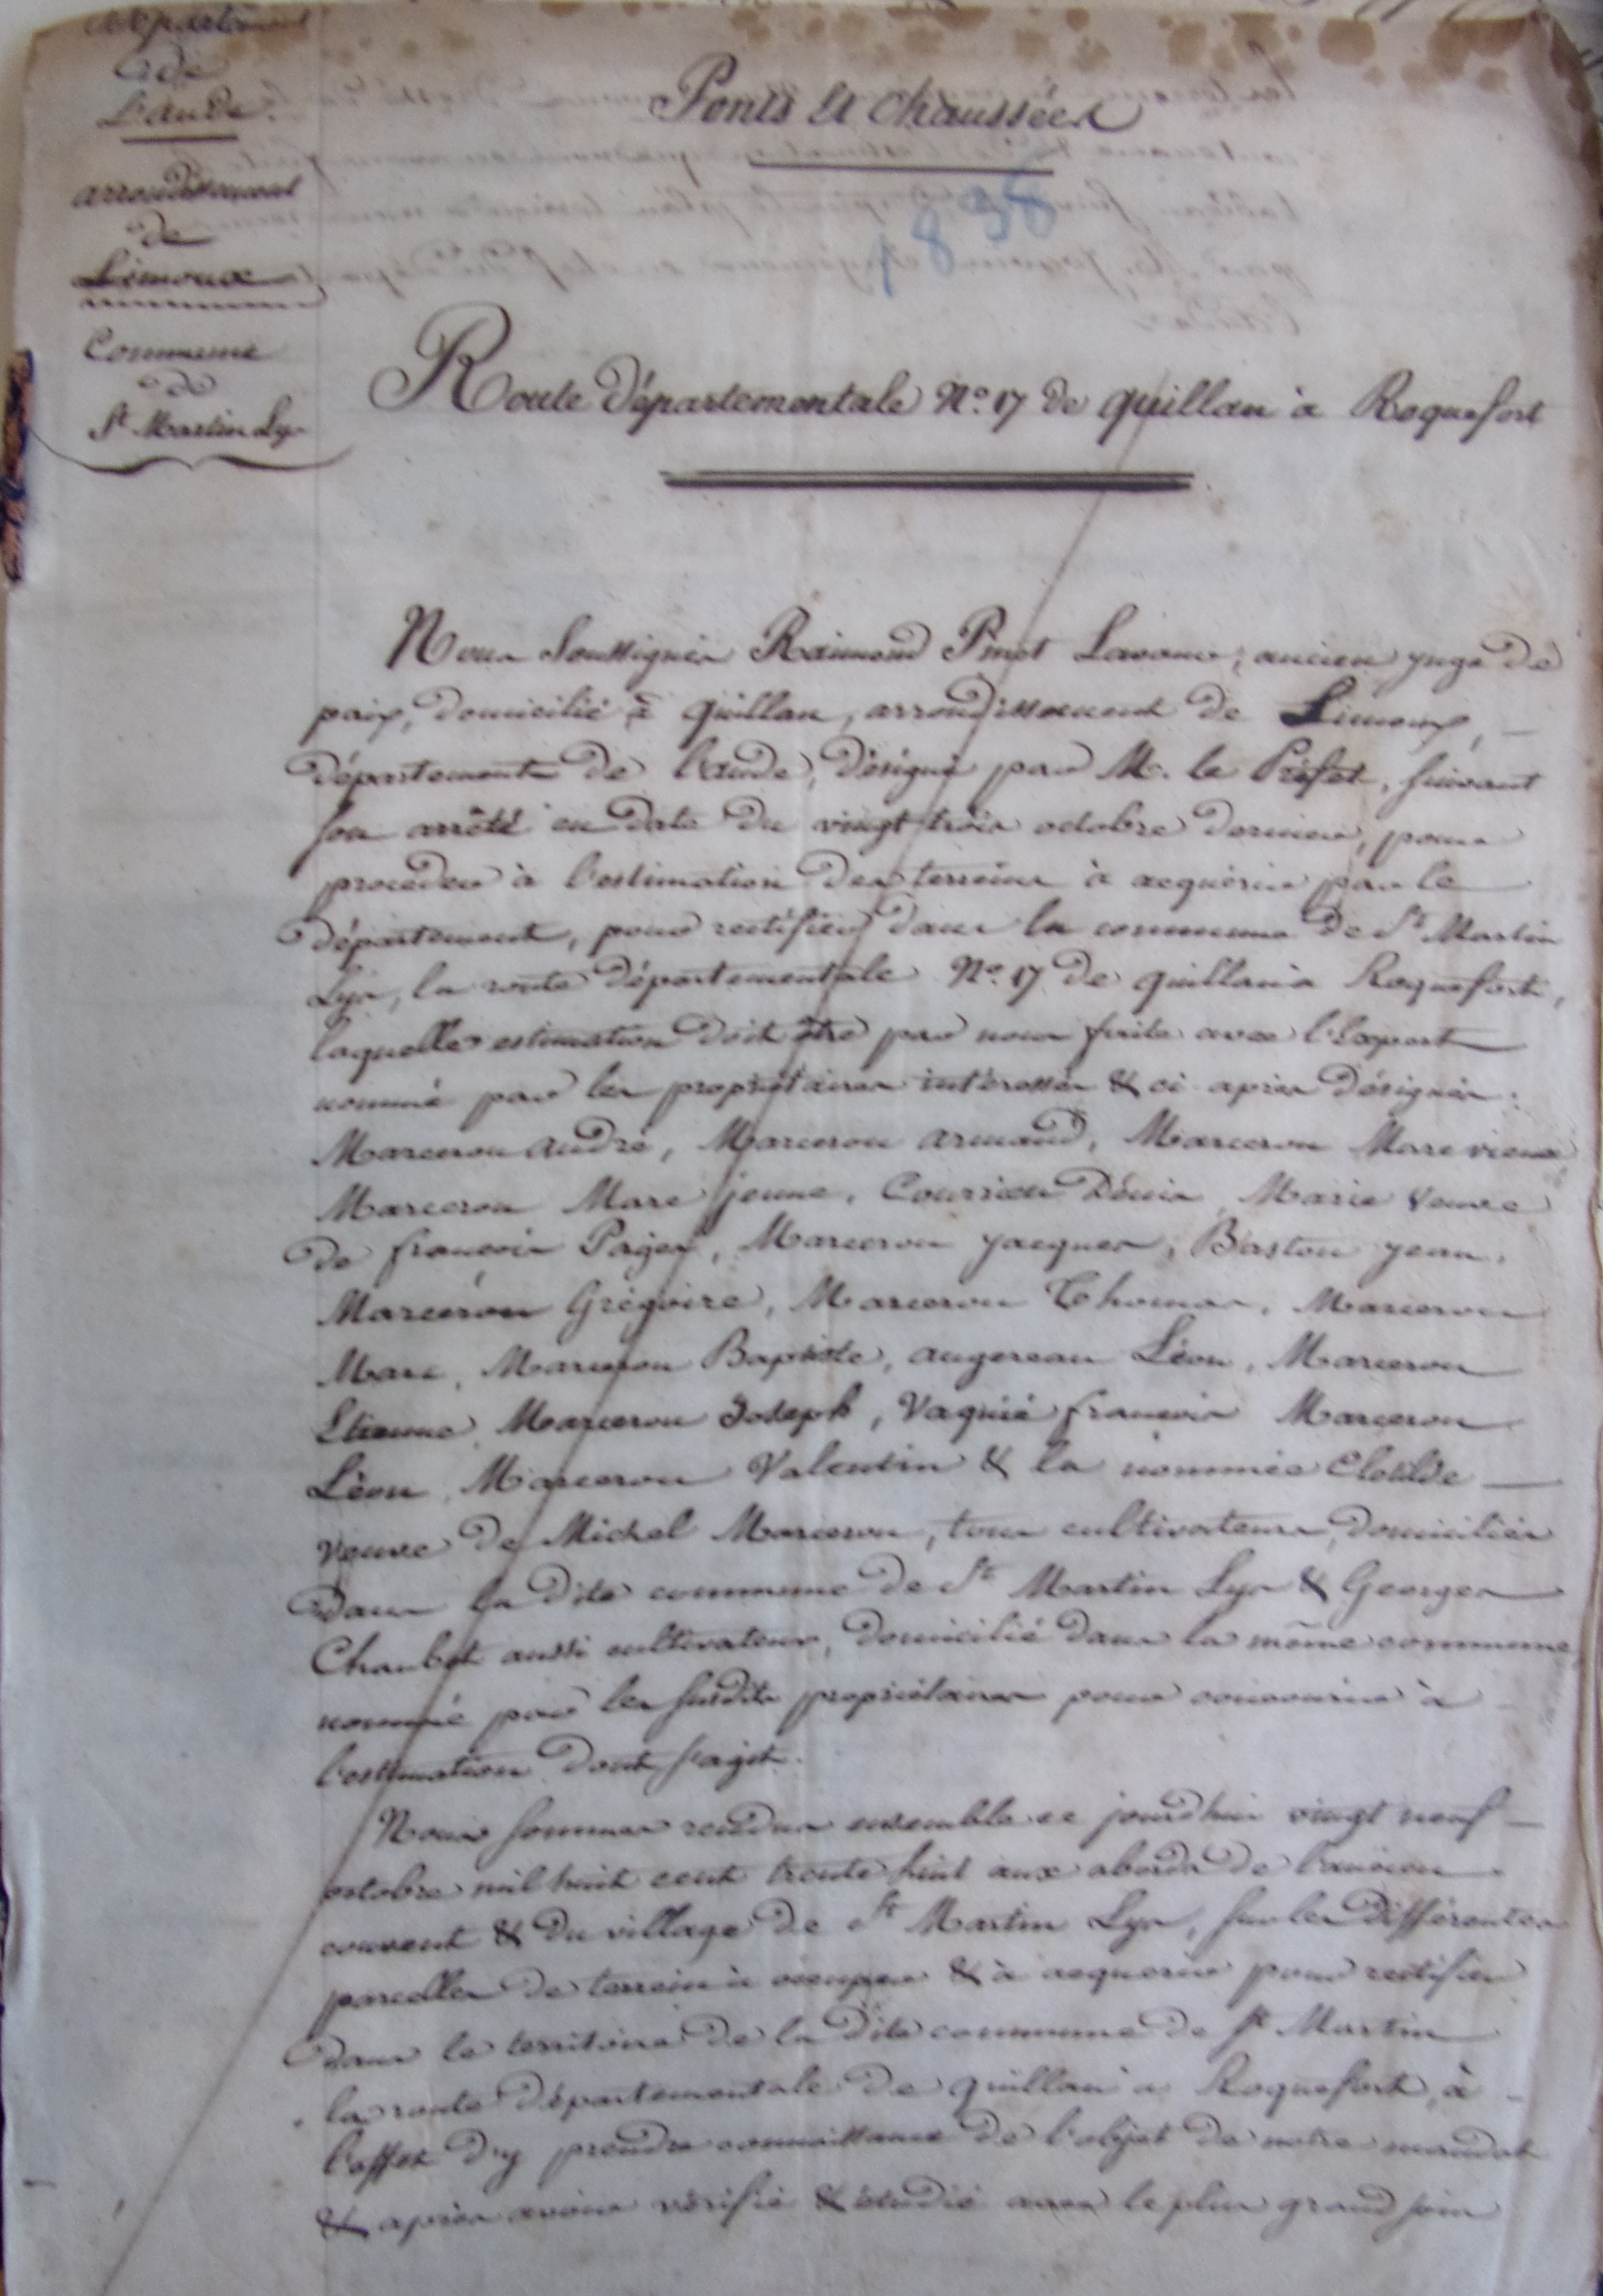 Département
de
L'aude.
arrondissement
de
Limoux
Commune
de
St. Martin Lys
Ponts et chaussées
1838
Route départementale No. 17 de quillan à Roquefort
Nous soussignés Raimond Pinet Lavaur, ancien juge de
paix, domicilié à quillan, arrondissement de Limoux,
département de l'aude, désigné par M. le Préfet, suivant
son arrêté en date du vingt trois octobre dernier, pour
proceder à l'estimation des terreins à acquérir par le
département, pour rectifier dans la commune de St. Martin
Lys, la route départementale No. 17 de quillan à Roquefort,
laquelle estimation doit être par nous faite avec l'Expert
nommé par les propriétaires intéressés & ci après désignés :
Marceron andré, Marceron armand, Marceron Marc vieux
Marceron Marc jeune, Courrieu Dénis, Marie veuve
de françois Pagès, Marceron jacques, Baston jean,
Marceron Grégoire, Marceron Thomas, Marceron
Marc, Marceron Baptiste, augereau Léon, Marceron
Etienne, Marceron Joseph, Vaquié françois Marceron
Léon, Marceron Valentin & la nommée Clotilde
veuve de Michel Marceron, tous cultivateurs, domiciliés
dans la dite commune de St. Martin Lys & Georges
Chaubet aussi cultivateur, domicilié dans la même commune
nommé par les susdits propriétaires pour concourir à
l'estimation dont s'agit.
Nous sommes rendus ensemble ce jourd'hui vingt neuf
octobre mil huit cent trente huit aux abords de l'ancien
couvent & du village de St. Martin Lys, sur les différentes
parcelles de terrein à occuper & à acquerir pour rectifier
dans le territoire de la dite commune de St. Martin
la route départementale de quillan à Roquefort, à
l'effet d'y prendre connaissance de l'objet de notre mandat
& après avoir vérifié & étudié avec le plus grand soin